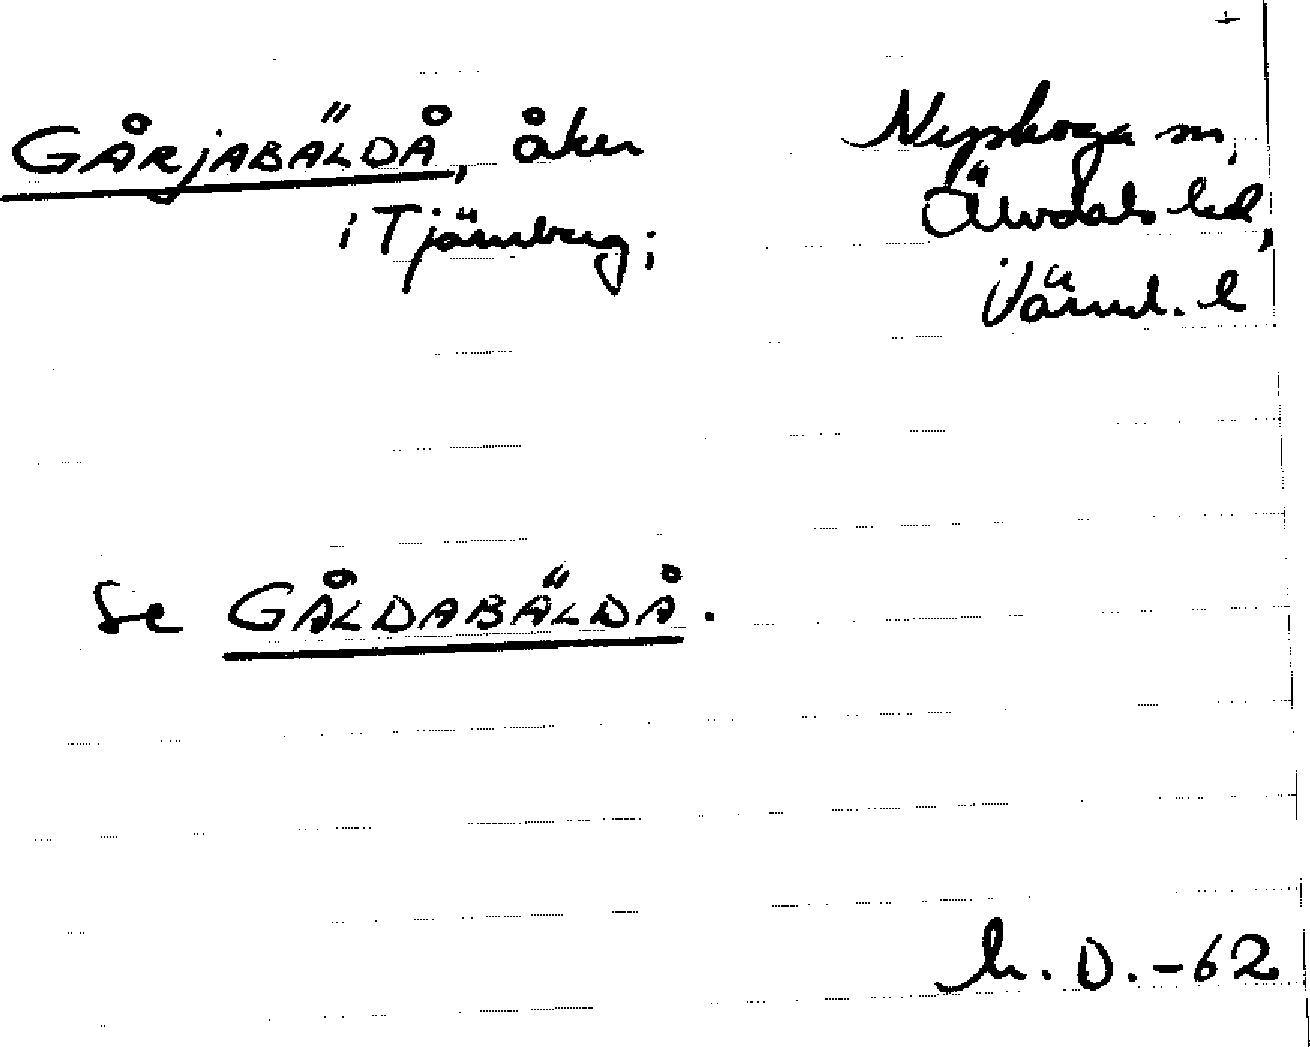 GÅRJABÄLDÅ, åker
i Tjärnberg;
Nyskoga sn,
Älvdals hd,
Värml. l
Se GÅLDABÄLDÅ.
D.-62